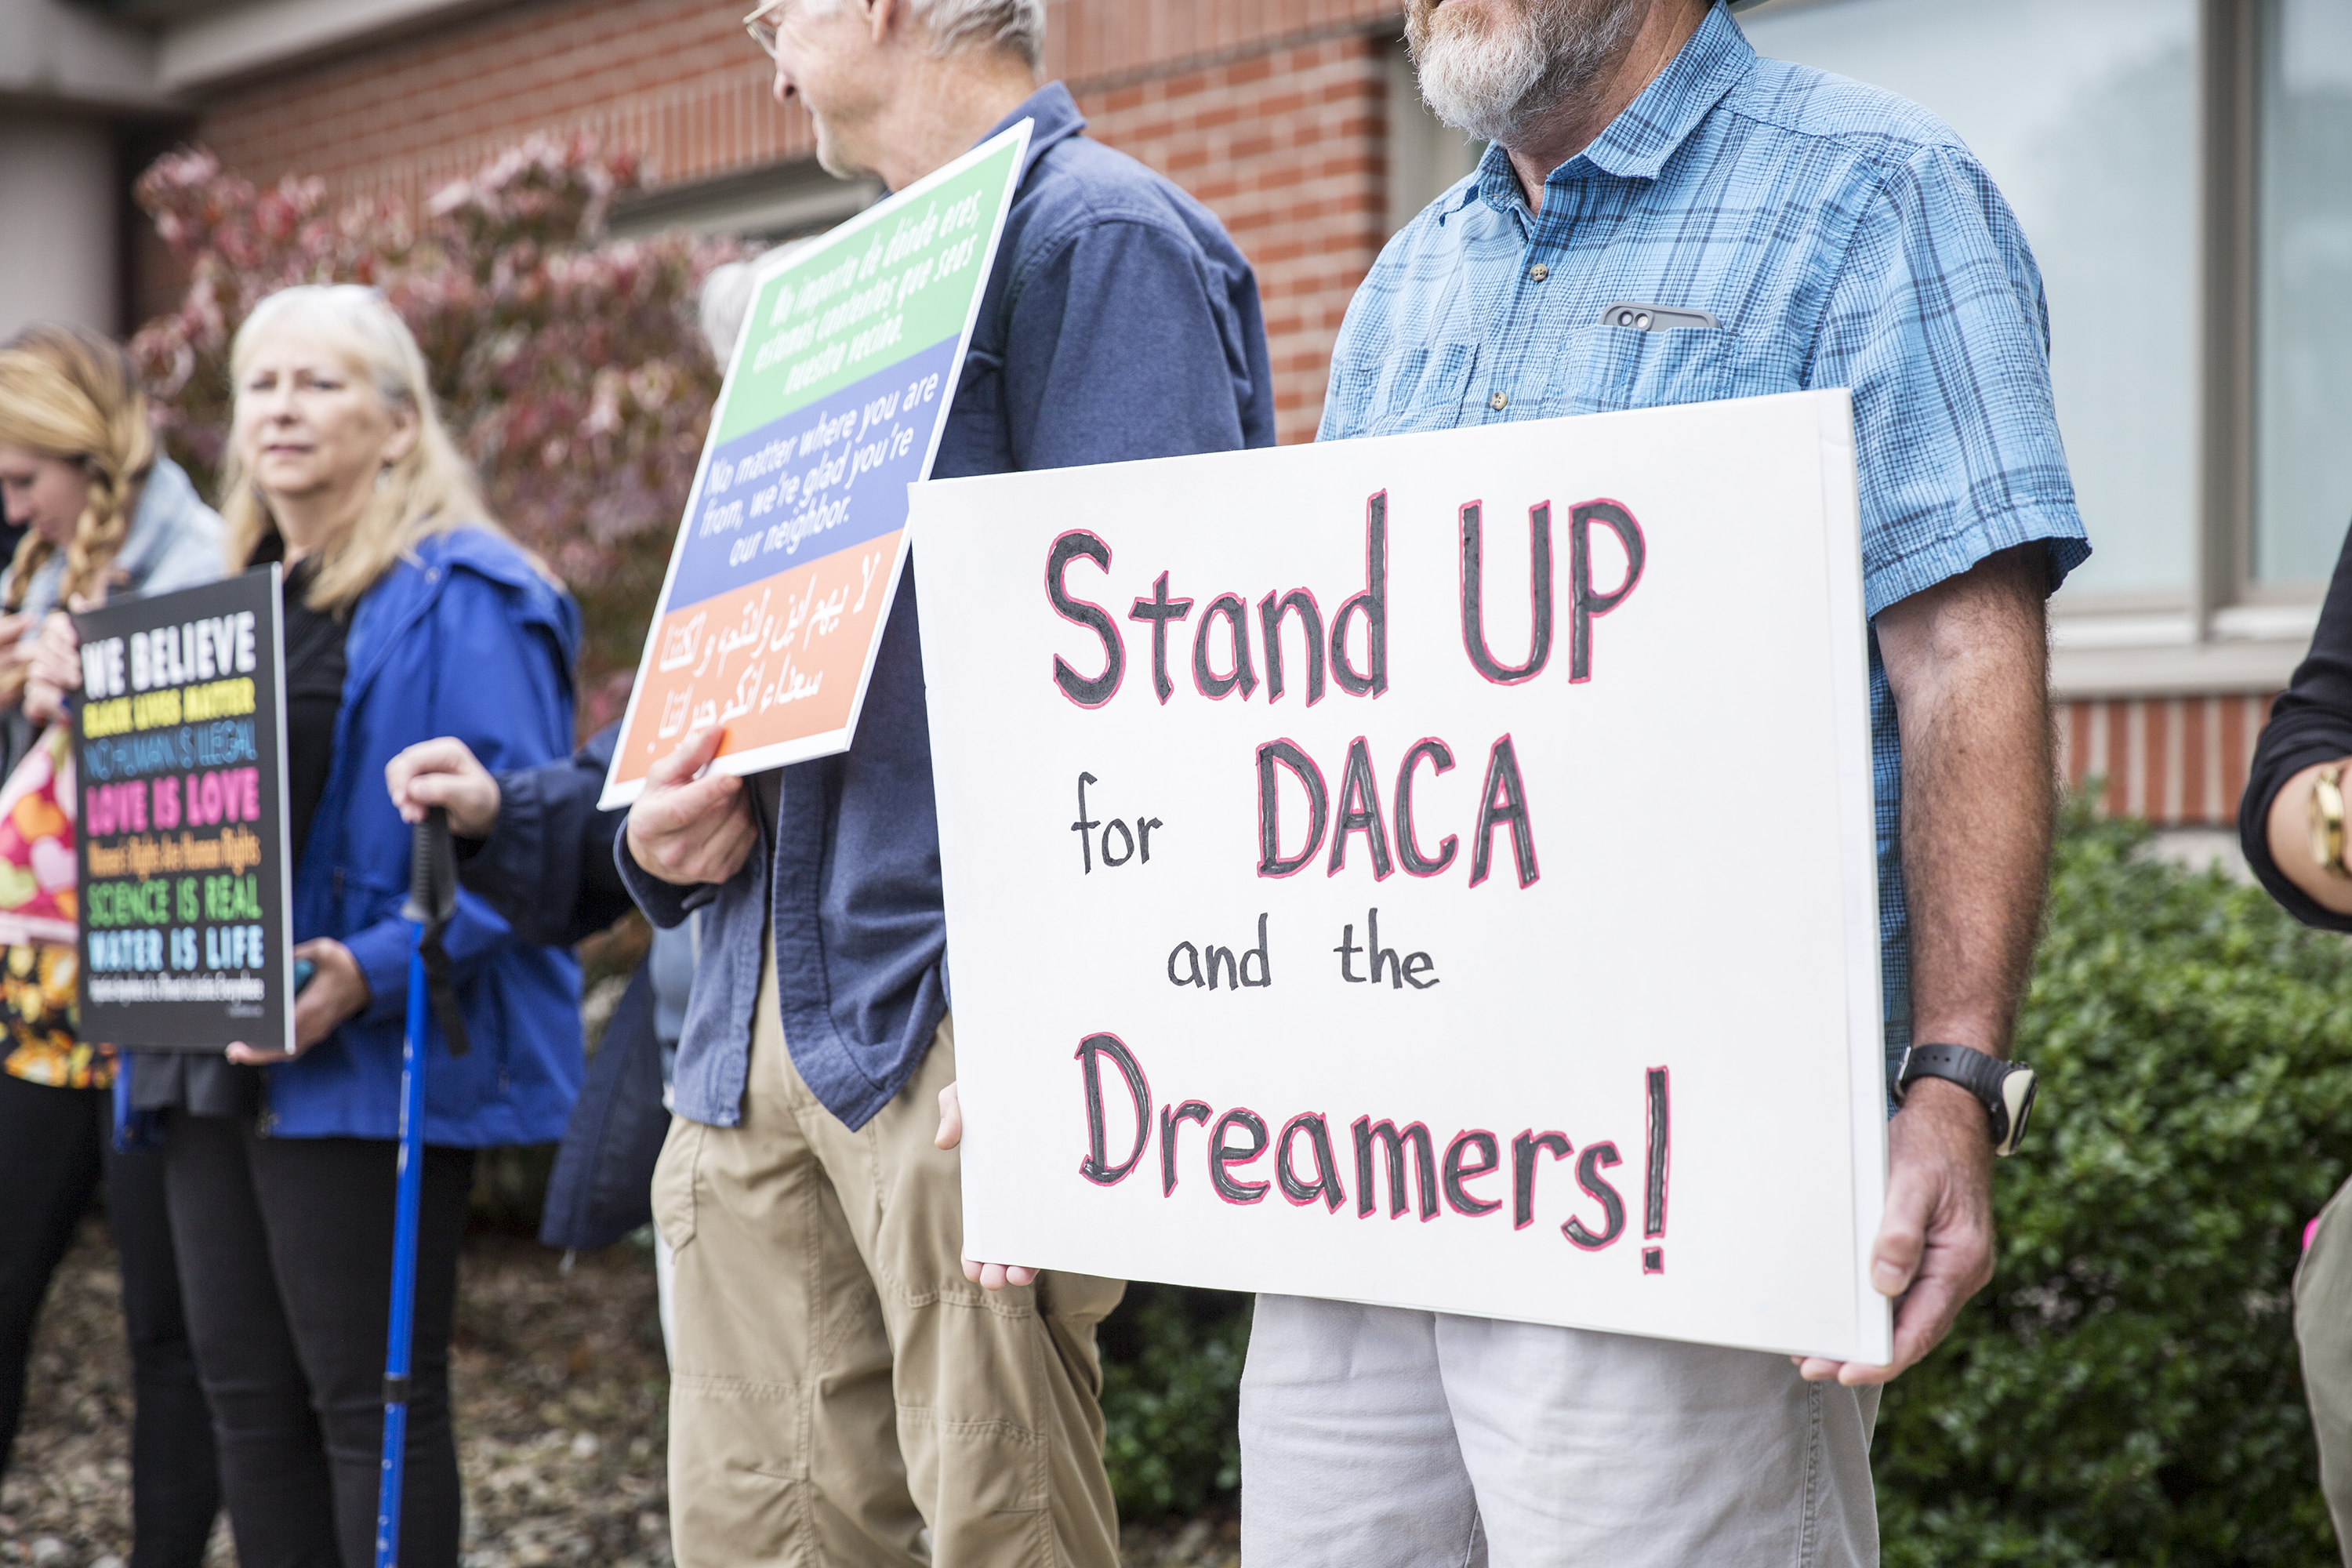 WE BELIEVE
BLACK LIVES MATTER
NO HUMAN IS ILLEGAL
LOVE IS LOVE
Women's Rights Are Human Rights
SCIENCE IS REAL
WATER IS LIFE
No importa de dónde eres,
estamos contentos que seas
nuestro vecino.
No matter where you are
from, we're glad you're
our neighbor.
لا يهم
سعداء انكم جيراننا.
Stand UP
for DACA
and the
Dreamers!